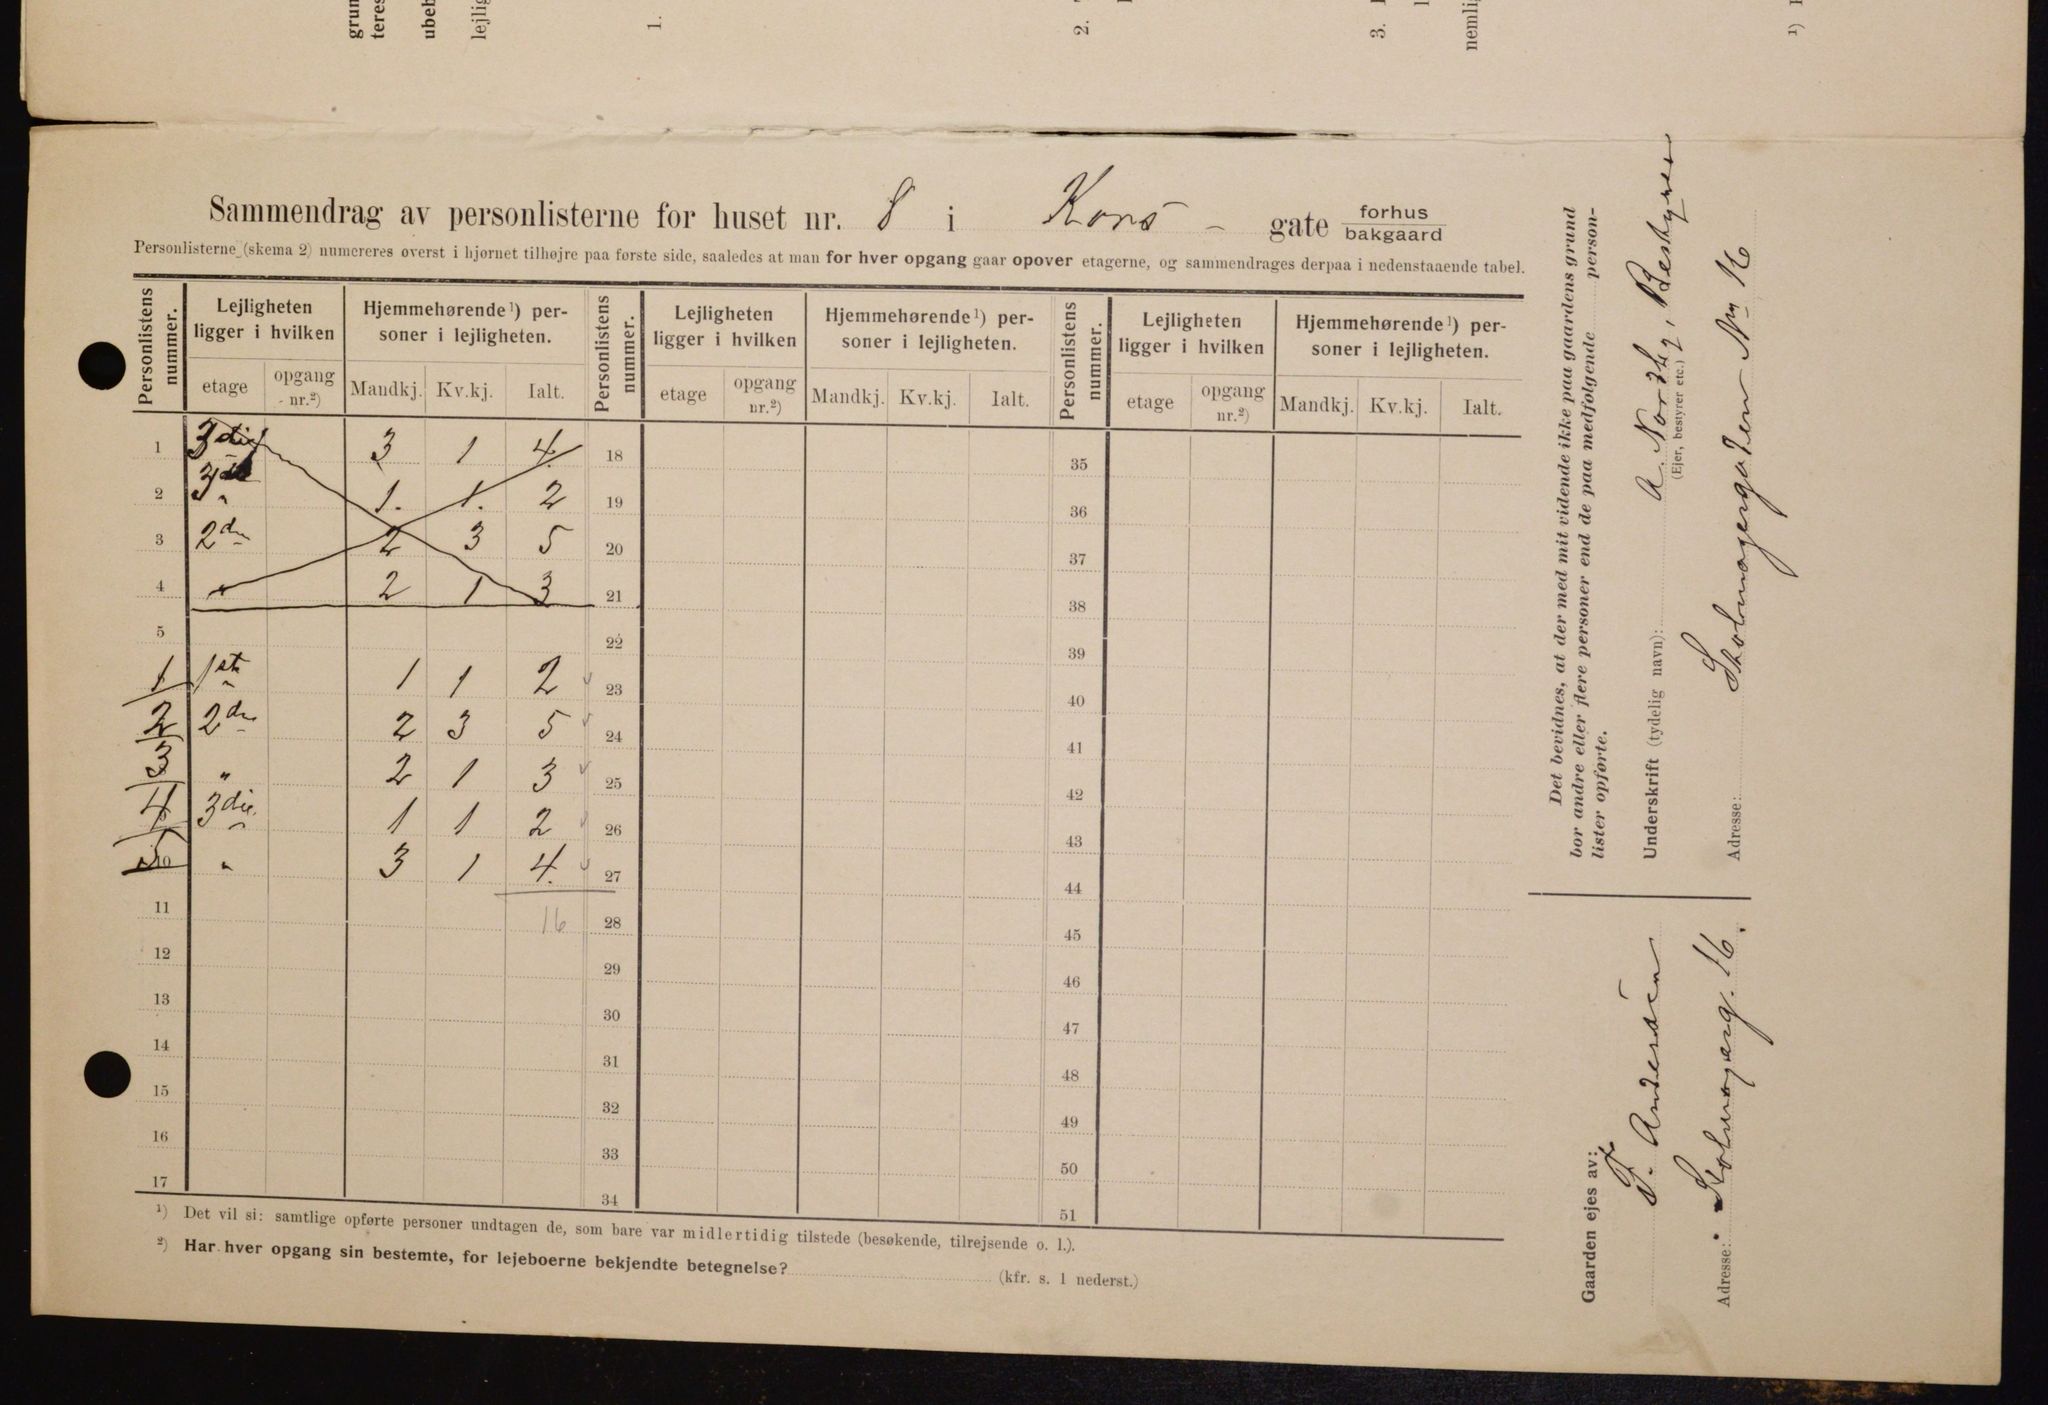 grun
teres
ubeb
lejlig
1.
2.
3.
nemlig
1)
Sammendrag av personlisterne for huset nr. 8 i Kors - gate forhus bakgaard
Personlisterne (skema 2) numereres øverst i hjørnet tilhøjre paa første side, saaledes at man for hver opgang gaar opover etagerne, og sammendrages derpaa i nedenstaaende tabel.
Personlistens nummer. Lejligheten ligger i hvilken Hjemmehørende 1) personer i lejligheten. Personlistens nummer. Lejligheten ligger i hvilken Hjemmehørende 1) personer i lejligheten. Personlistens nummer. Lejligheten ligger i hvilken Hjemmehørende 1) personer i lejligheten.
etage opgang nr.2) Mandkj. Kv.kj. Ialt. etage opgang nr.2) Mandkj. Kv.kj. Ialt. etage opgang nr.2) Mandkj. Kv.kj. Ialt.
1 3die 3 1 4. 18 35
2 3die 1. 1. 2 19 36
3 2den 2 3 5 20 37
4 2 1 3 21 38
5 22 39
1 1ste 1 1 2 23 40
2 2den 2 3 5 24 41
3 " 2 1 3 25 42
4 3die 1 1 2 26 43
5 10 " 3 1 4. 27 44
11 16 28 45
12 29 46
13 30 47
14 31 48
15 32 49
16 33 50
17 34 51
1) Det vil si: samtlige opførte personer undtagen de, som bare var midlertidig tilstede (besøkende, tilrejsende o. l.).
2) Har hver opgang sin bestemte, for lejeboerne bekjendte betegnelse? (kfr. s. 1 nederst.)
Det bevidnes, at der med mit vidende ikke paa gaardens grund
bor andre eller flere personer end de paa medfølgende person-
lister opførte.
Underskrift (tydelig navn): A. Norby, Bestyrer
(Ejer, bestyrer etc.)
Adresse: Skolmagergaden No 16
Gaarden ejes av:
F. Andersen
Adresse: Skolmagerg. 16.